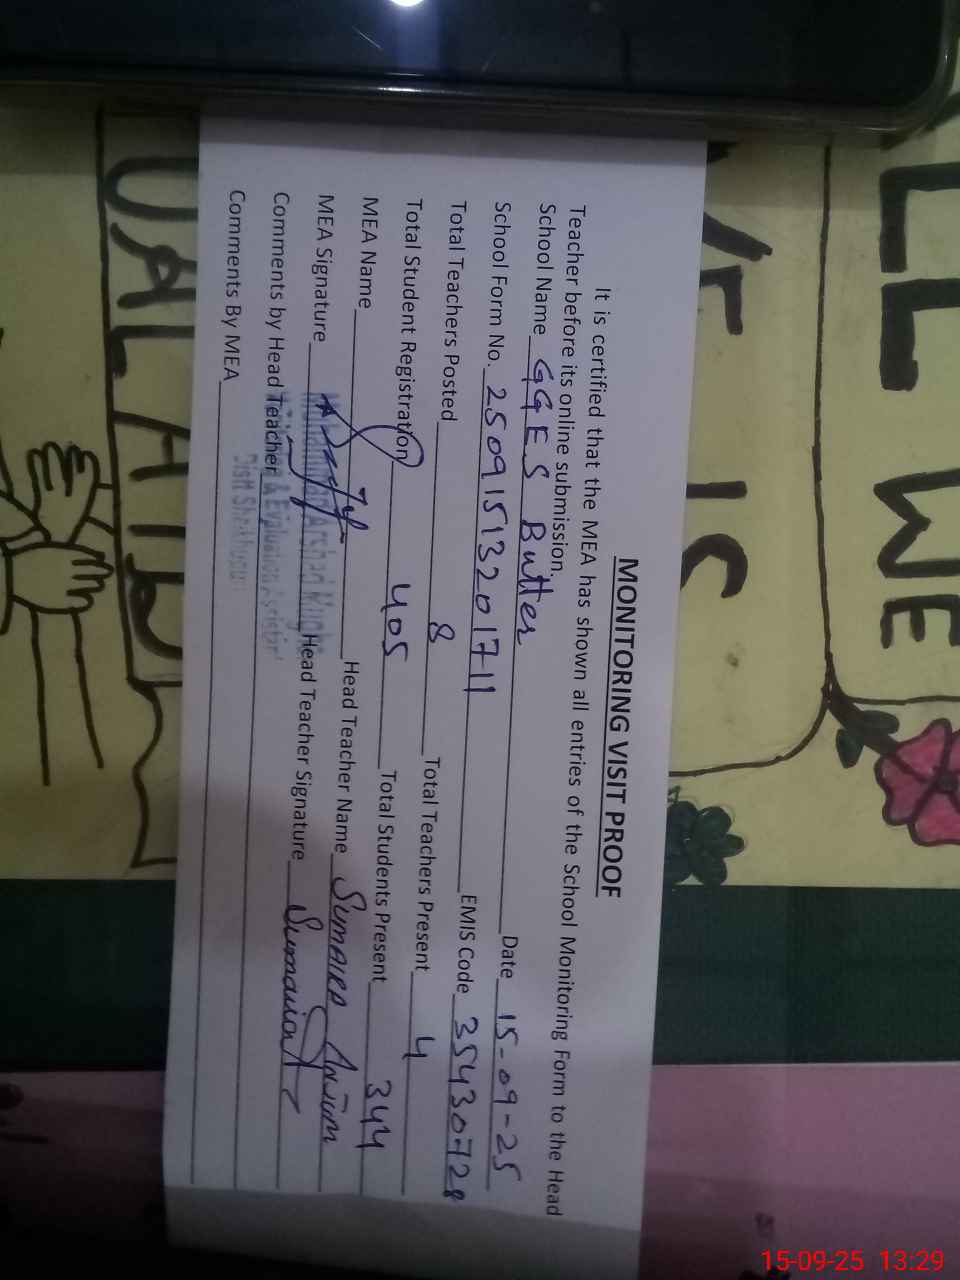 MONITORING VISIT PROOF
It is certified that the MEA has shown all entries of the School Monitoring Form to the Head
Teacher before its online submission.
School Name GGES Butter Date 15-09-25
School Form No. 250915132017-11 EMIS Code 35430728
Total Teachers Posted 8 Total Teachers Present 4
Total Student Registration 405 Total Students Present 344
MEA Name Head Teacher Name Sumaira Anjum
MEA Signature Head Teacher Signature Sumaira
Muhammad Arshad Mughal
Comments by Head Teacher
& Evaluation Assistant
Distt Sheikhupura
Comments By MEA
LL WE
IS
15-09-25 13:29